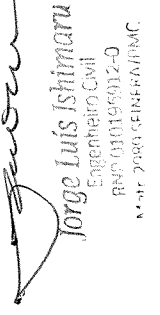 Jorge Luís Ishimaru
Engenheiro Civil
RNP 010195012-0
Matr. 2080 SEINFRA/PMC